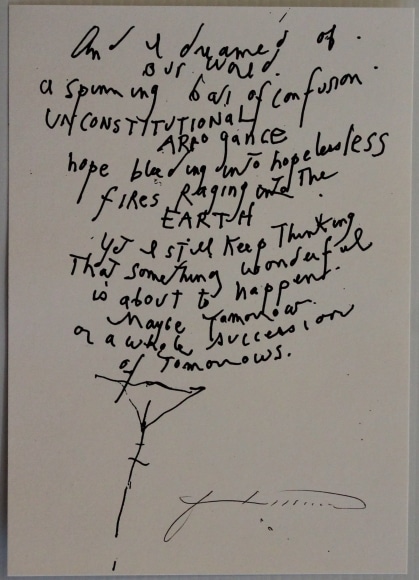 And I dreamed of.
our world.
a spinning ball of confusion.
UNCONSTITUTIONAL
ARROGANCE
hope bleeding into hopelessless
fires Raging into The
EARTH
Yet I still Keep Thinking
That something wonderful
is about to happen.
Maybe Tomorrow.
or a whole succession
of Tomorrows.